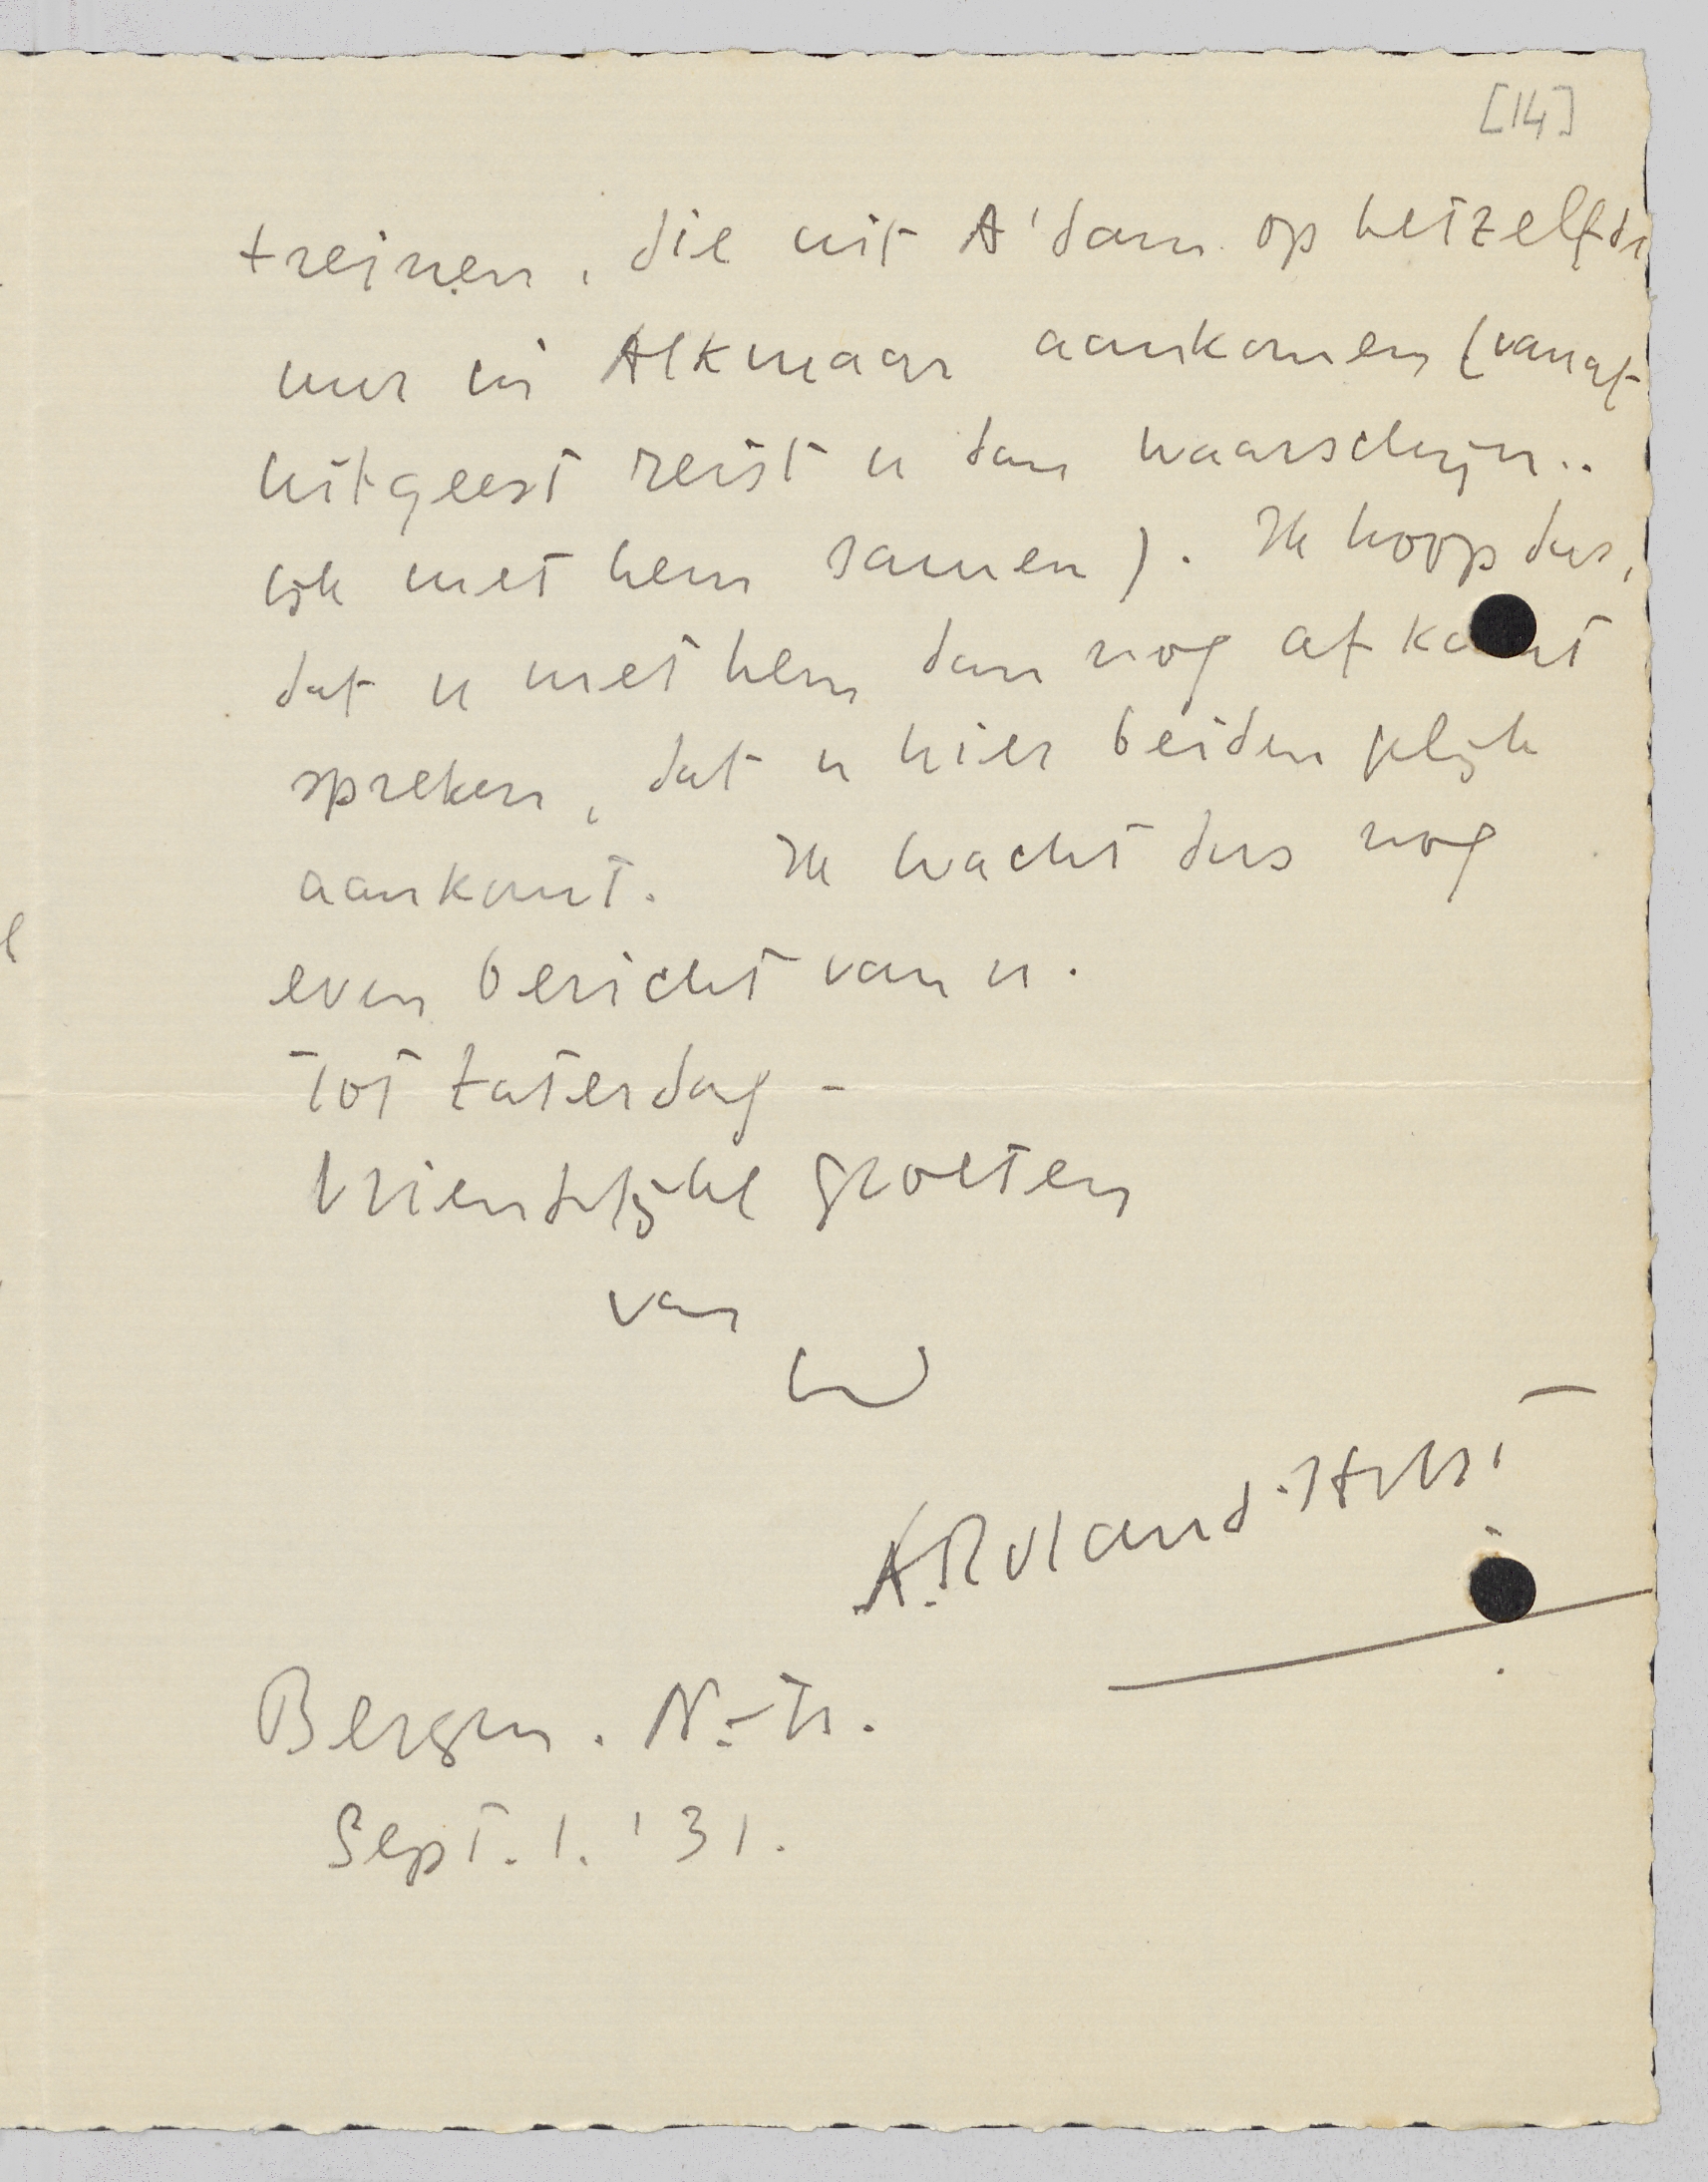 [14]
treinen, die uit A'dam op hetzelfde
uur in Alkmaar aankomen (vanaf
Uitgeest reist u dan waarschijn..
lijk met hem samen). Ik hoop dus,
dat u met hem dan nog af kunt
spreken, dat u hier beiden gelijk
aankomt. Ik wacht dus nog
even bericht van u.
Tot Zaterdag -
Vriendelijke groeten
van
uw
A. Roland Holst
Bergen. N.-H.
Sept. 1. '31.